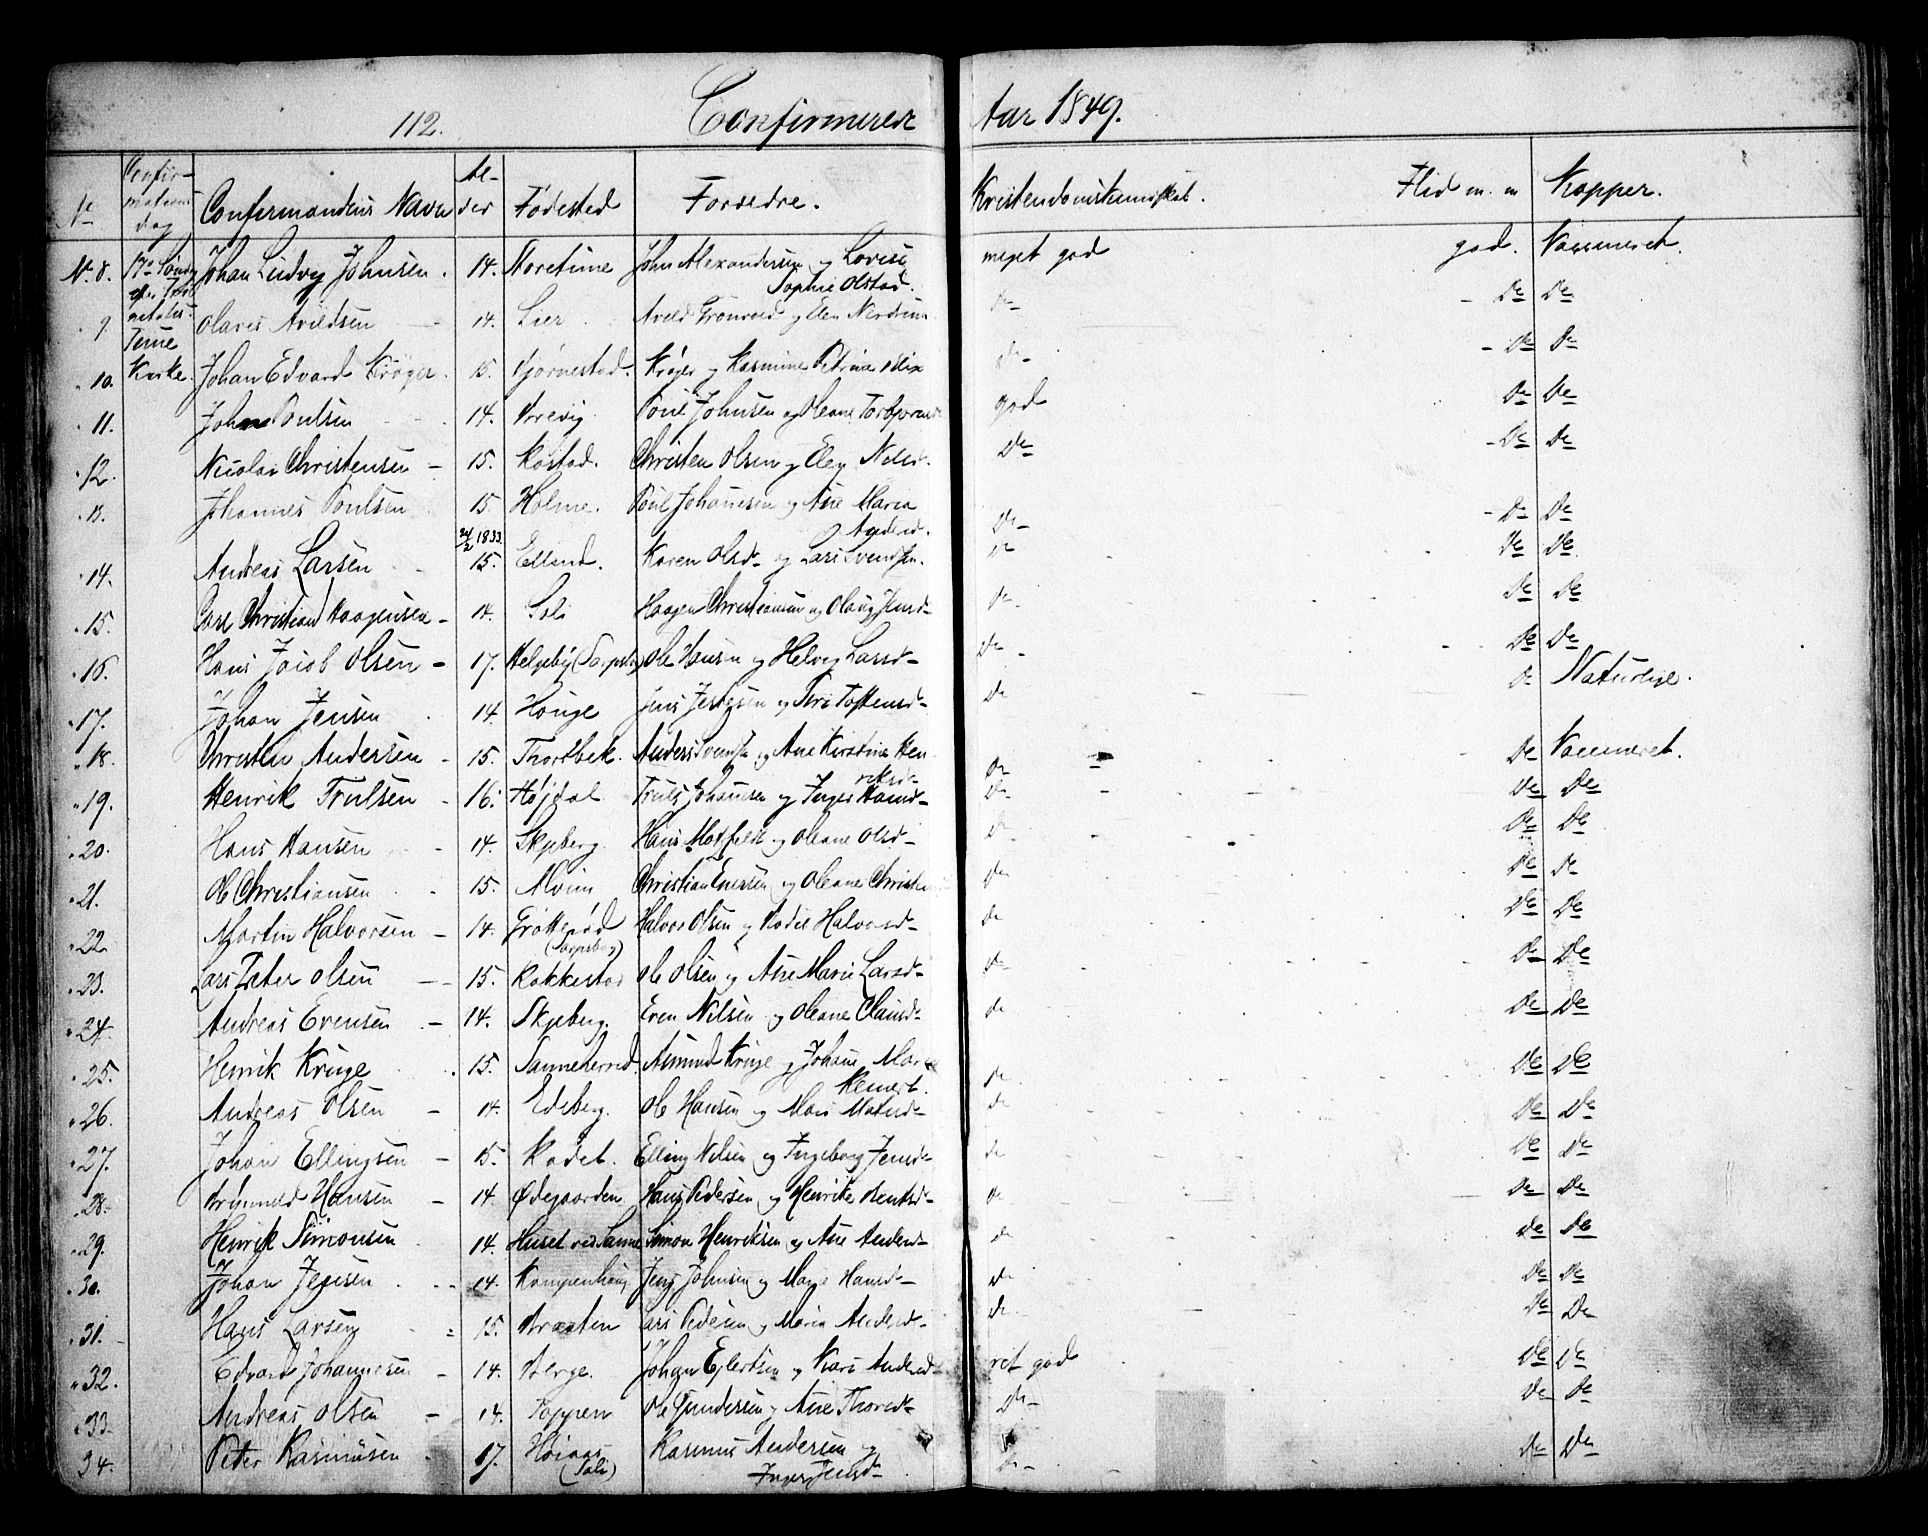 112. Confirmerede Aar 1849.
No Confirmations dag Confirmandens Navn Alder Fødested Forældre. Kristendomskundskab. Flid m. m Kopper.
No 8. 17de Søndag efter Trinitatis Tune Kirke. Johan Ludvig Johnsen. 14. John Alexandersen og Lovise Sophie Olstad. meget god god. Vaccineret.
" 9 Olaves Arildsen 14. Lier Arild Grønvold og Elen Nordrum Do Do Do
" 10. Johan Edvard Krøger. 15. Bjørnestad. Krøjer og Rasmine Petrine Do Do Do
" 11. Johan Poulsen 14. Poul Johnsen og Oleane Torbjørnsd god Do Do
" 12. Nicolai Christensen 15. Christen Olsen og Eleg Nilsd. Do Do Do
" 13. Johannes Poulsen 15 Holme. Poul Johanesen og Ane Maria Andersd. Do Do Do
" 14. Andreas Larsen 24/2 1833. 15. Karen Olsd og Lars Svendsen. Do Do Do
" 15. Carl Christian Haagensen 14. Haagen Christiansen og Olaug Jensd Do Do Do
" 16. Hans Jacob Olsen 17. Helgeby (Sarpsborg) Ole Hansen og Helvig Larsd Do Do Do
" 17. Johan Jensen 14. Houge Jens og Toftensd Do Do Naturlige.
" 18. Christen Andersen 15. Anders Svendsen og Ane Kirstine Henriksd Do Do Vaccineret.
" 19. Henrik Trulsen 16. Højdal Truls Johansen og Inger Hansd Do Do Do
" 20. Hans Hansen 14. Skjeberg Hans og Oleane Olsd Do Do Do
" 21. Ole Christiansen 15. Alvim Christian Enersen og Oleane Christen Do Do Do
" 22 Martin Halvorsen 14. Grotterød (Sarpsborg) Halvor Olsen og Bodil Halvorsd Do Do Do
" 23. Lars Peter Olsen 15. Rakkestad Ole Olsen og Ane Marie Larsd Do Do Do
" 24. Andreas Evensen 14. Skjeberg. Even Nilsen og Oleane Clausd Do Do Do
" 25. Henrik Kruge 15. Sanneherred. Asmund Kruge og Johane Marie Do Do Do
" 26. Andreas Olsen 14. Edeberg. Ole Hansen og Mari Do Do Do
" 27. Johan Ellingsen 15. Raadet. Elling Nilsen og Ingeborg Jensd Do Do Do
" 28. Hansen 14. Ødegaarden Hans Pedersen og Henrike Do Do Do
" 29. Henrik Simonsen 14. Huset ved Sanne Simon Henriksen og Ane Andersd Do Do Do
" 30. Johan Jensen 14. Kampenhaug Jens Johnsen og Marie Hansd Do Do Do
" 31. Hans Larsen 15. Braaten Lars Pedersen og Maria Andersd Do Do Do
" 32. Edvard Johannesen 14. Berge. Johan Ejlertsen og Kari Andersd ret god Do Do
" 33 Andreas Olsen 14. Toppen Ole Gundersen og Ane Thorsd Do Do Do
" 34. Peter Rasmusen 17. Høiaas (Soli) Rasmus Andersen og Inger Jensd Do Do Do